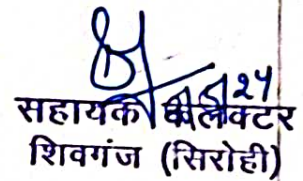 सहायक कलेक्टर
शिवगंज (सिरोही)